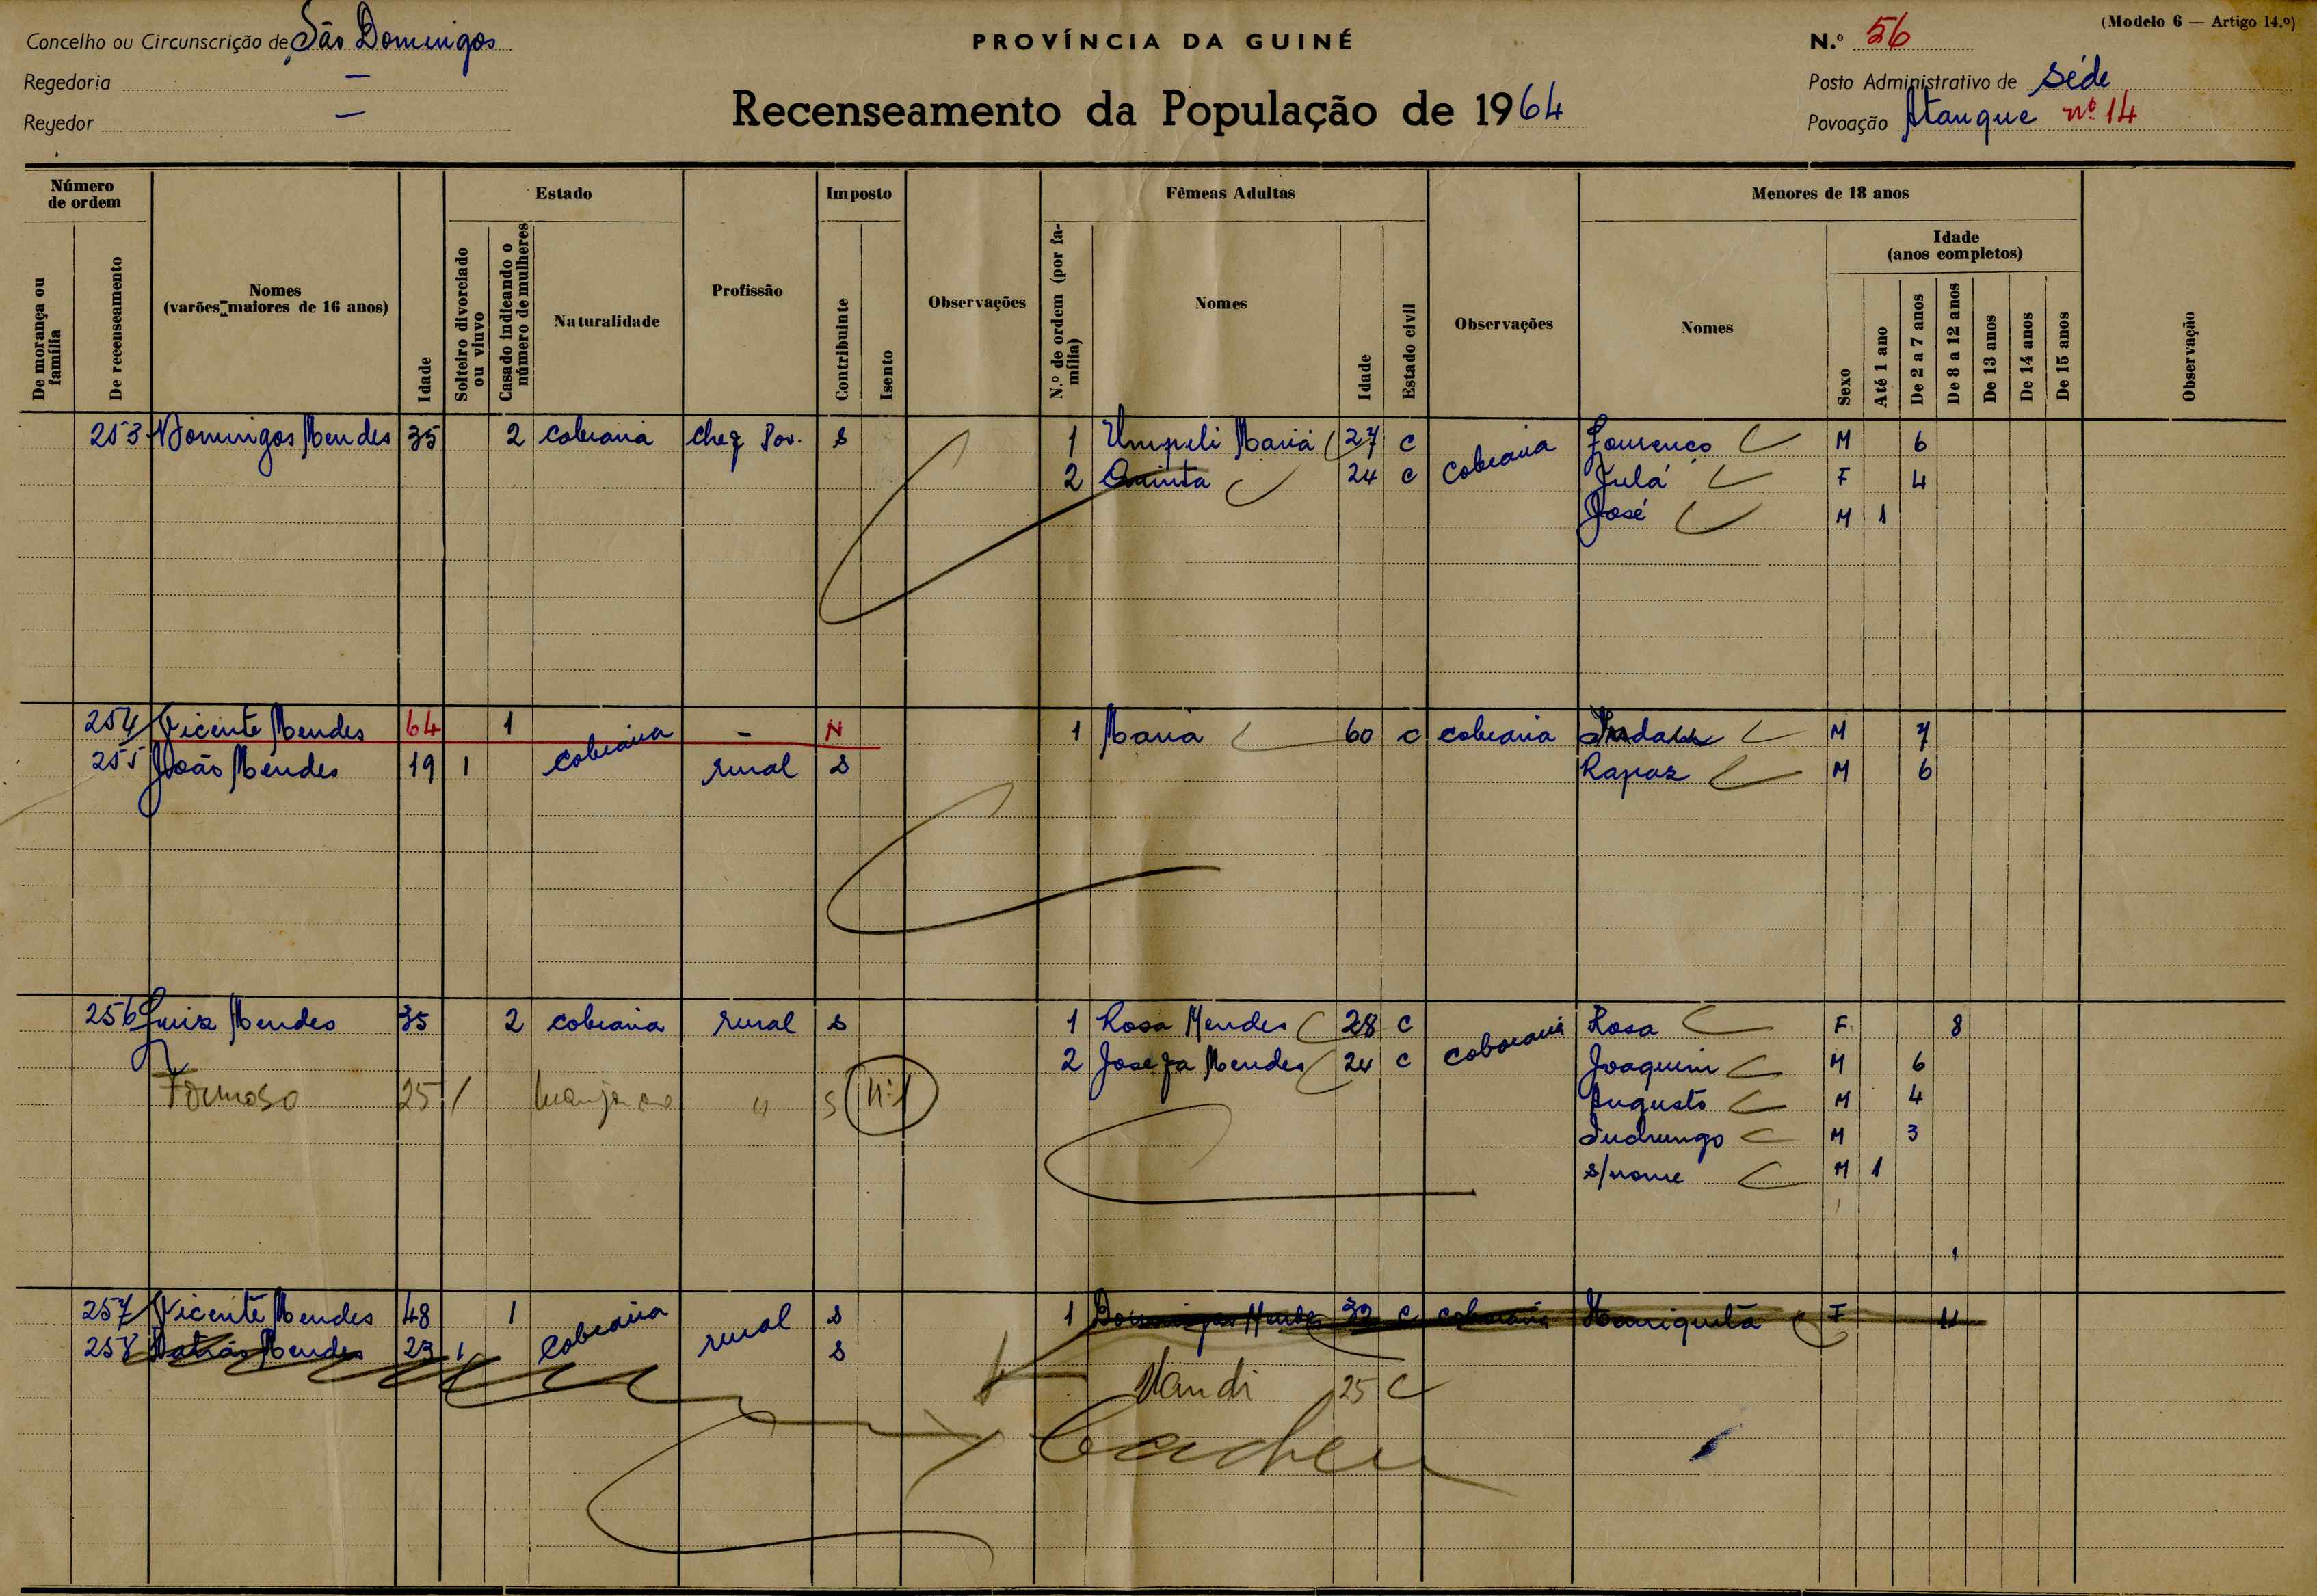 (Modelo 6 — Artigo 14.º)
Concelho ou Circunscrição de São Domingos
PROVÍNCIA DA GUINÉ
N.º 56
Regedoria —
Posto Administrativo de Séde
Regedor —
Recenseamento da População de 1964
Povoação Atanque nº 14
Número de ordem
Estado
Imposto
Fêmeas Adultas
Menores de 18 anos
De morança ou família
De recenseamento
Nomes (varões maiores de 16 anos)
Idade
Solteiro divorciado ou viuvo
Casado indicando o número de mulheres
Naturalidade
Profissão
Contribuinte
Isento
Observações
N.º de ordem (por família)
Nomes
Idade
Estado civil
Observações
Nomes
Sexo
Idade (anos completos)
Até 1 ano
De 2 a 7 anos
De 8 a 12 anos
De 13 anos
De 14 anos
De 15 anos
Observação
253 Domingos Mendes 35 2 cobiana Chef Pov. S 1 Maria 27 C cobiana Lourenço M 6
2 Quinta 24 C Julá F 4
José M 1
254 Vicente Mendes 64 1 cobiana — N 1 Maria 60 C cobiana M 7
255 João Mendes 19 1 rural S Rapaz M 6
256 Luiz Mendes 35 2 cobiana rural S 1 Rosa Mendes 28 C cobiana Rosa F 8
2 Josefa Mendes 24 C Joaquim M 6
Formoso 25 / " S Augusto M 4
M 3
s/nome M 1
257 Vicente Mendes 48 1 cobiana rural S 1 Mendes 32 C cobiana Henriqueta F 11
258 Mendes 23 1 S
Nandi 25 C
Cacheu